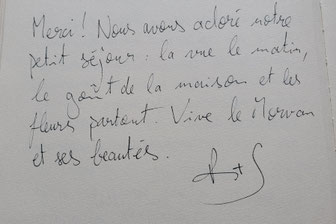 Merci ! Nous avons adoré notre
petit séjour : la vue le matin,
le goût de la maison et les
fleurs partout. Vive le Morvan
et ses beautés.